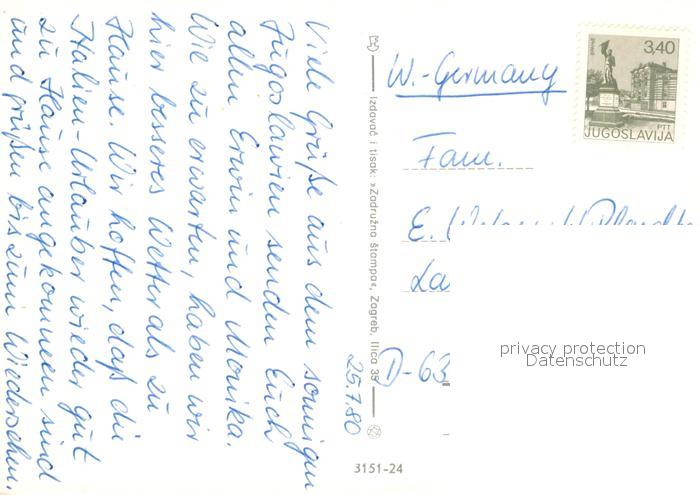 Viele Grüße aus dem sonnigen
Jugoslawien senden Euch
allen Erwin und Monika.
Wie zu erwarten, haben wir
hier besseres Wetter als zu
Hause. Wir hoffen, daß die
Italien-Urlauber wieder gut
zu Hause angekommen sind
und grüßen bis zum Wiedersehen.
Izdavač i tisak: »Zadružna štampa«, Zagreb, Ilica 35
25.7.80
3151-24
3,40
PTT
JUGOSLAVIJA
W.-Germany
Fam.
E.
La
D-63
privacy protection
Datenschutz